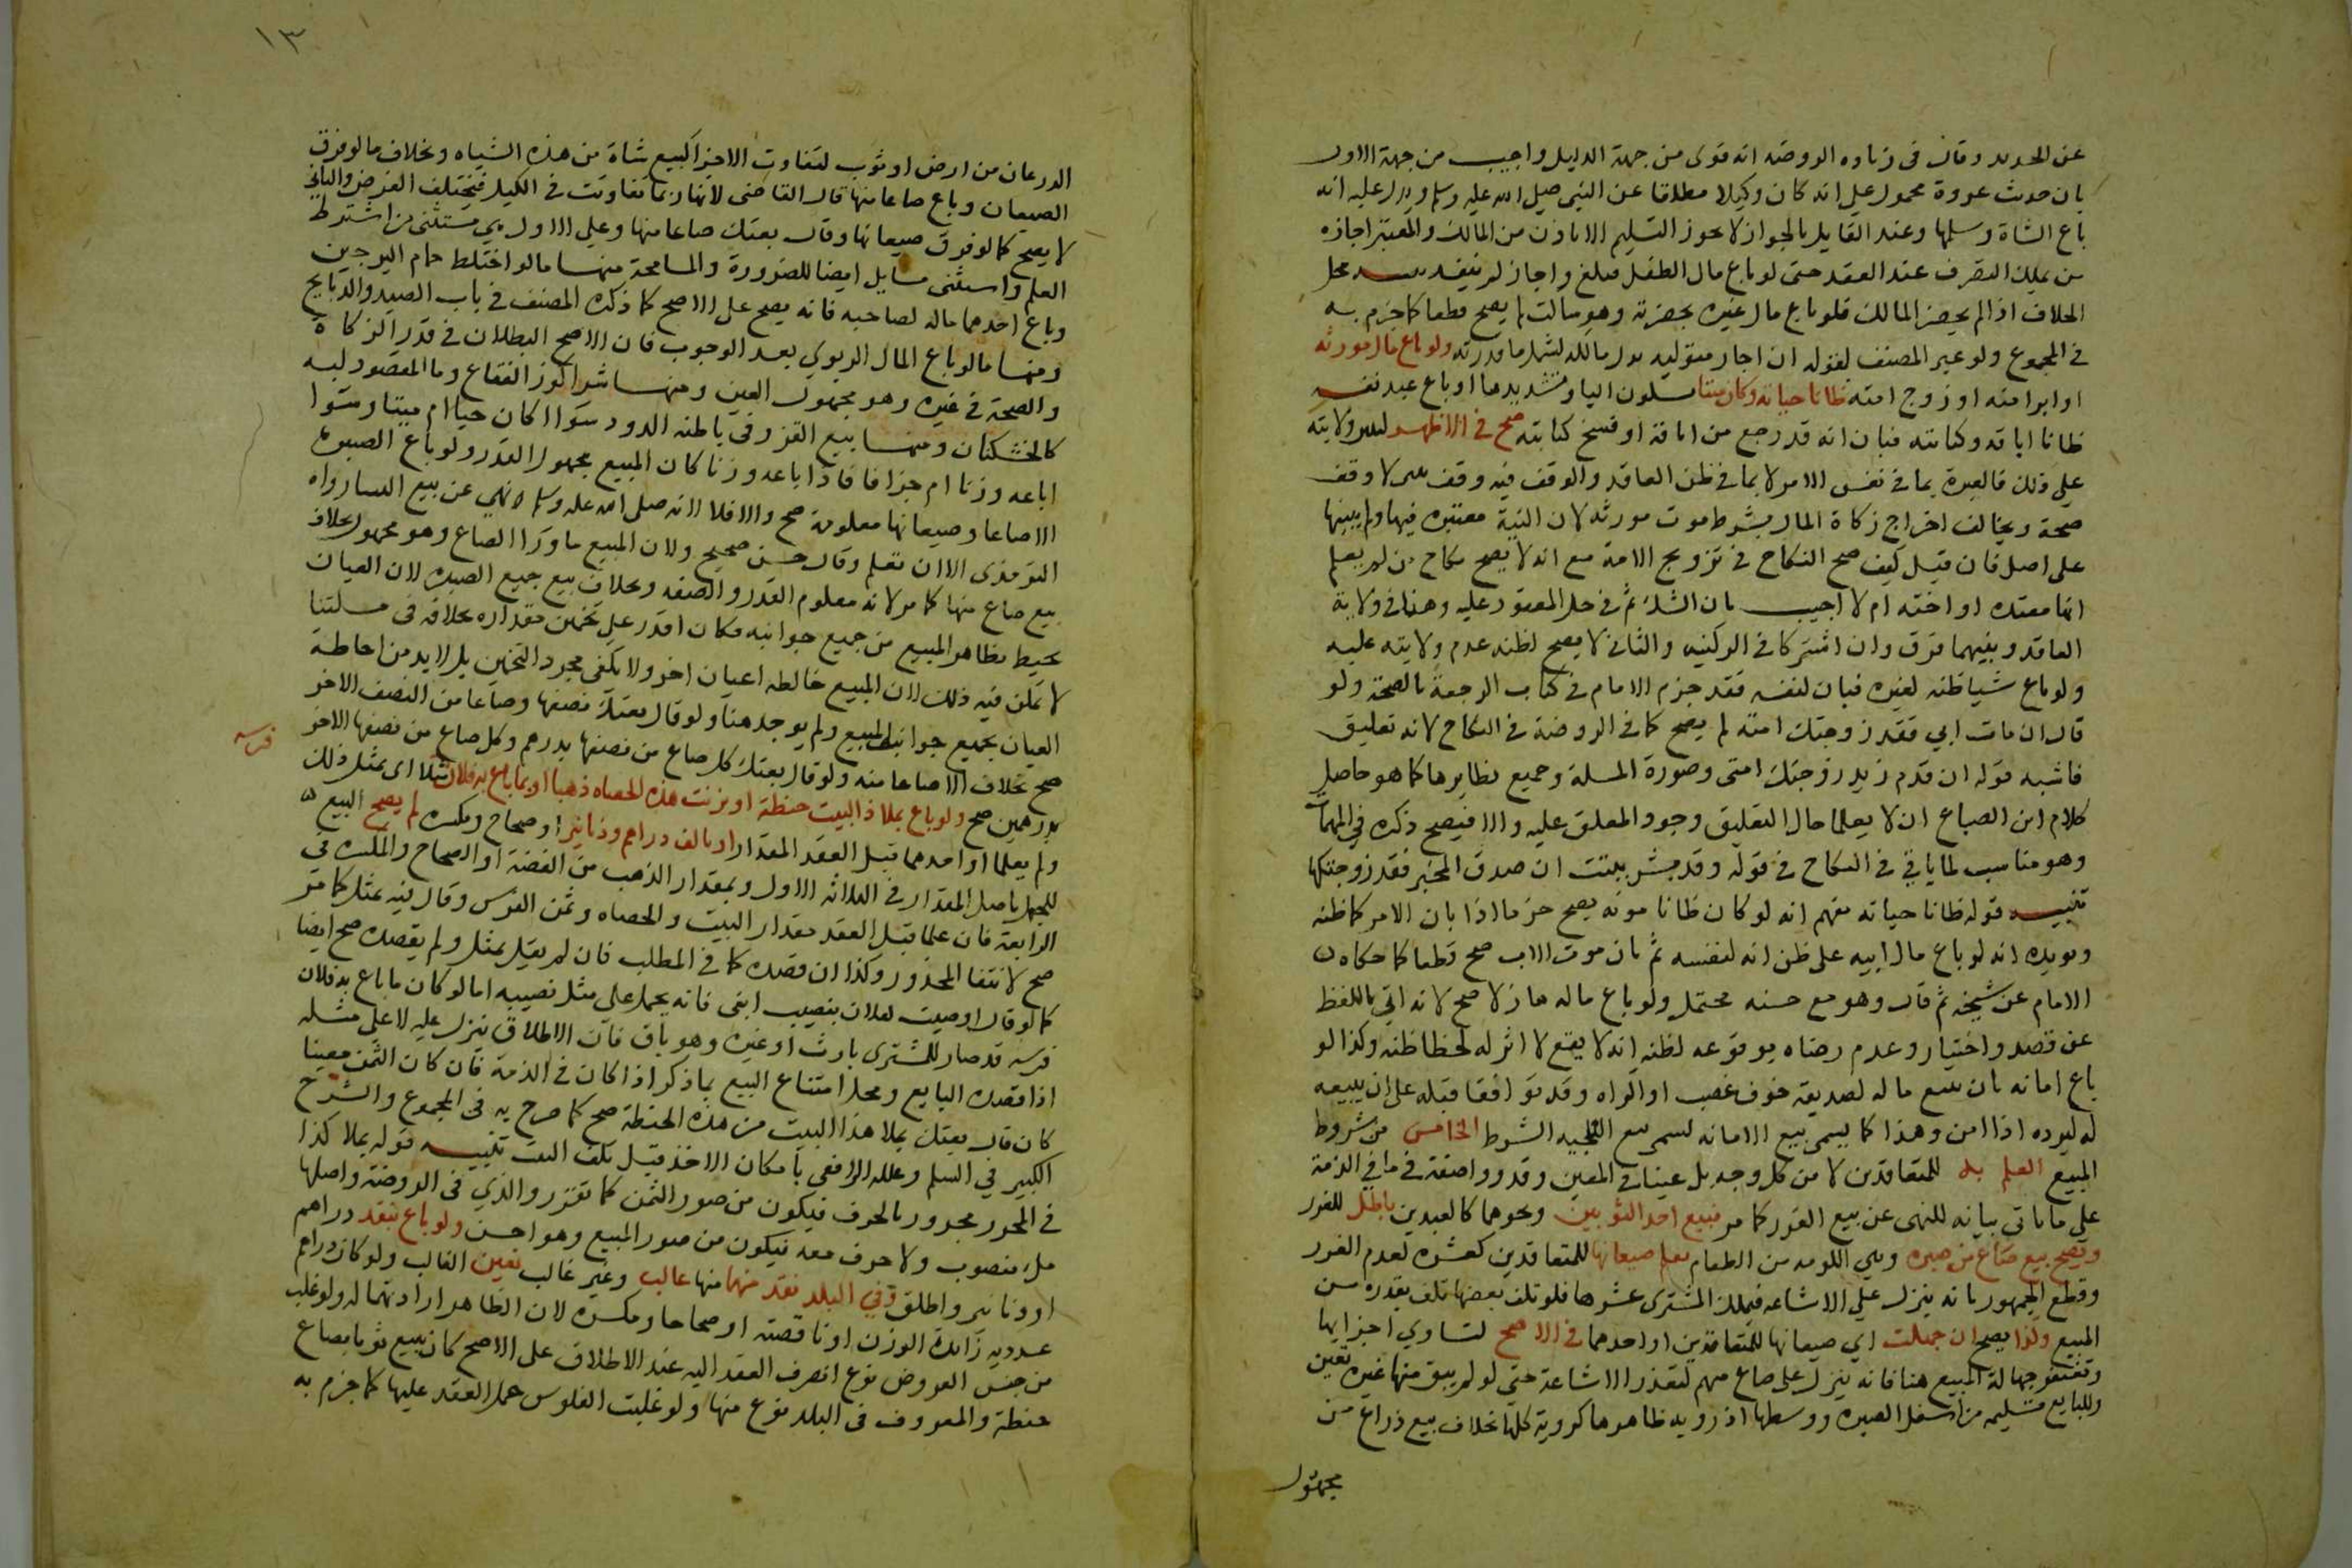 عن الجديد وقال في زيادة الروضة انه قوى من جهة الدليل واجيب من جهة الاول
بان حديث عروة محمول على انه كان وكيلا مطلقا عن النبى صلى الله عليه وسلم ويدل عليه انه
باع الشاة وسلمها وعند القايل بالجواز لا يجوز التسليم الا باذن من المالك والمعتبر اجازه
من يملك التصرف عند العقد حتى لو باع مال الطفل فبلغ واجاز لم ينفذ محل
الخلاف اذا لم يحضر المالك فلو باع مال غيره بحضرته وهو ساكت لم يصح قطعا كما جزم به
في المجموع ولو عبر المصنف بقوله ان اجاز متوليه بدل مالكه لشمل ما قدرته ولو باع مال مورثه
او ابرا منه او زوج امته ظانا حياته وكان ميتا بسكون اليا وتشديدها او باع عبد نفسه
ظانا اباقه وكتابته فبان انه قد رجع من اباقه او فسخ كتابته صح في الاظهر لتبين ولايته
على ذلك فالعبرة بما في نفس الامر لا بما في ظن العاقد والوقف فيه وقف تبين لا وقف
صحة ويخالف اخراج زكاة المال بشرط موت مورثه لان النية معتبره فيها ولم يبينها
على اصل فان قيل كيف صح النكاح في تزويج الامة مع انه لا يصح نكاح من لم يعلم
انها معتده او اخته ام لا اجيب بان الشك ثم في حل المعقود عليه وهنا في ولاية
العاقد وبينهما فرق وان اشتركا في الركنيه والثاني لا يصح لظنه عدم ولايته عليه
ولو باع شيا ظنه لغيره فبان لنفسه فقد جزم الامام في كتاب الرجعة بالصحة ولو
قال ان مات ابي فقد زوجتك امته لم يصح كما في الروضة في النكاح لانه تعليق
فاشبه قوله ان قدم زيد زوجتك امتى وصورة المسلة وجميع نظايرها كما هو حاصل
كلام ابن الصباغ ان لا يعلما حال التعليق وجود المعلق عليه والا فيصح ذكره في المهمات
وهو مناسب لما ياتي في النكاح في قوله وقد بشر ببنت ان صدق المخبر فقد زوجتكها
تنبيه قوله ظانا حياته مفهم انه لو كان ظانا موته يصح جزما اذا بان الامر كما ظنه
ويويده انه لو باع مال ابيه على ظن انه لنفسه ثم بان موت الاب صح قطعا كما حكاه
الامام عن شيخه ثم قال وهو مع حسنه محتمل ولو باع ماله هازلا صح لانه اتي باللفظ
عن قصد واختيار وعدم رضاه بوقوعه لظنه انه لا يقع لا اثر له لخطا ظنه وكذا لو
باع امانه بان يبيع ماله لصديقه خوف غصب او اكراه وقد توافقا قبله على ان يبيعه
له ليرده اذا امن وهذا كما يسمى بيع الامانه يسمى بيع التلجيه الشرط الخامس من شروط
المبيع العلم به للمتعاقدين لا من كل وجه بل عينا في المعين وقدرا وصفة في ما في الذمة
على ما ياتي بيانه للنهى عن بيع الغرر كما مر فبيع احد الثوبين ونحوهما كالعبدين باطل للغرر
ويصح بيع صاع من صبره وهي الكومه من الطعام تعلم صيعانها للمتعاقدين كعشره لعدم الغرر
وقطع الجمهور بانه ينزل على الاشاعه فيملك المشترى عشرها فلو تلف بعضها تلف بقدره من
المبيع وكذا يصح ان جهلت اي صيعانها للمتعاقدين او احدهما في الاصح لتساوي اجزايها
وتغتفر جهالة المبيع هنا فانه ينزل على صاع مبهم لتعذر الاشاعة حتي لو لم يبق منها غيره تعين
وللبايع تسليمه من اسفل الصبره ووسطها اذ رويه ظاهرها كروية كلها بخلاف بيع ذراع من
مجهول
١٣
الذرعان من ارض او ثوب لتفاوت الاجزا كبيع شاة من هذه الشياه وبخلاف ما لو فرق
الصيعان وباع صاعا منها قال القاضى لانها ربما تفاوتت في الكيل فيختلف الغرض والثاني
لا يصح كما لو فرق صيعانها وقال بعتك صاعا منها وعلي الاول هي مستثنى من اشتراط
العلم واستثنى مسايل ايضا للضرورة والمسامحة منها ما لو اختلط حمام البرجين
وباع احدهما ماله لصاحبه فانه يصح على الاصح كما ذكره المصنف في باب الصيد والذبايح
ومنها ما لو باع المال الزكوي بعد الوجوب فان الاصح البطلان في قدر الزكاة
والصحة في غيره وهو مجهول العين ومنها شرا كوز الفقاع وما المقصود لبه
كالخشكنان ومنها بيع القز وفي باطنه الدود سوا اكان حيا ام ميتا وسوا
اباعه وزنا ام جزافا فاذا باعه وزنا كان المبيع مجهول القدر ولو باع الصبره
الا صاعا وصيعانها معلومة صح والا فلا لانه صلى الله عليه وسلم نهي عن بيع الثنيا رواه
الترمذى الا ان تعلم وقال حسن صحيح ولان المبيع ما ورا الصاع وهو مجهول بخلاف
بيع صاع منها كما مر لانه معلوم القدر والصفه وبخلاف بيع جميع الصبره لان العيان
يحيط بظاهر المبيع من جميع جوانبه فكان اقدر على تخمين مقداره بخلافه في مسلتنا
لا يمكن فيه ذلك لان المبيع خالطه اعيان اخر ولا يكفي مجرد التخمين بل لا بد من احاطة
العيان بجميع جوانب المبيع ولم يوجد هنا ولو قال بعتك نصفها وصاعا من النصف الاخر
صح بخلاف الا صاعا منه ولو قال بعتك كل صاع من نصفها بدرهم وكل صاع من نصفها الاخر
فرسه
بدرهمين صح ولو باع بملا ذا البيت حنطة او بزنت هذه الحصاه ذهبا او بما باع به فلان مثلا اى بمثل ذلك
ولم يعلما او احدهما قبل العقد المقدار او بالف دراهم ودنانير او صحاح ومكسره لم يصح البيع
للجهل باصل المقدار في الثلاثه الاول وبمقدار الذهب من الفضة او الصحاح والمكسره في
الرابعة فان علما قبل العقد مقدار البيت والحصاه وثمن الفرس وقال فيه بمثل كما مر
صح لانتفا المحذور وكذا ان قصده كما في المطلب فان لم يقل بمثل ولم يقصده صح ايضا
كما لو قال اوصيت لفلان بنصيب ابنى فانه يحمل على مثل نصيبه اما لو كان ما باع به فلان
فرسه قد صار للمشترى بارث او غيره وهو باق فان الاطلاق ينزل عليه لا على مثله
اذا قصده البايع ومحل امتناع البيع بما ذكر اذا كان في الذمة فان كان الثمن معينا
كان قال بعتك بملا هذا البيت من هذه الحنطة صح كما صرح به في المجموع والشرح
الكبير في السلم وعلله الرافعي بامكان الاخذ قبل تلف البيت تنبيه قوله بملا كذا
في المحرر مجرور بالحرف فيكون من صور الثمن كما تقرر والذي في الروضة واصلها
ملء منصوب ولا حرف معه فيكون من صور المبيع وهو احسن ولو باع بنقد دراهم
او دنانير واطلق وفي البلد نقد منهما منها غالب وغير غالب تعين الغالب ولو كان دراهم
عدديه زايدة الوزن او ناقصته او صحاحا ومكسره لان الظاهر ارادتهما له ولو غلب
من جنس العروض نوع انصرف العقد اليه عند الاطلاق على الاصح كان يبيع ثوبا بصاع
حنطة والمعروف في البلد نوع منها ولو غلبت الفلوس حمل العقد عليها كما جزم به